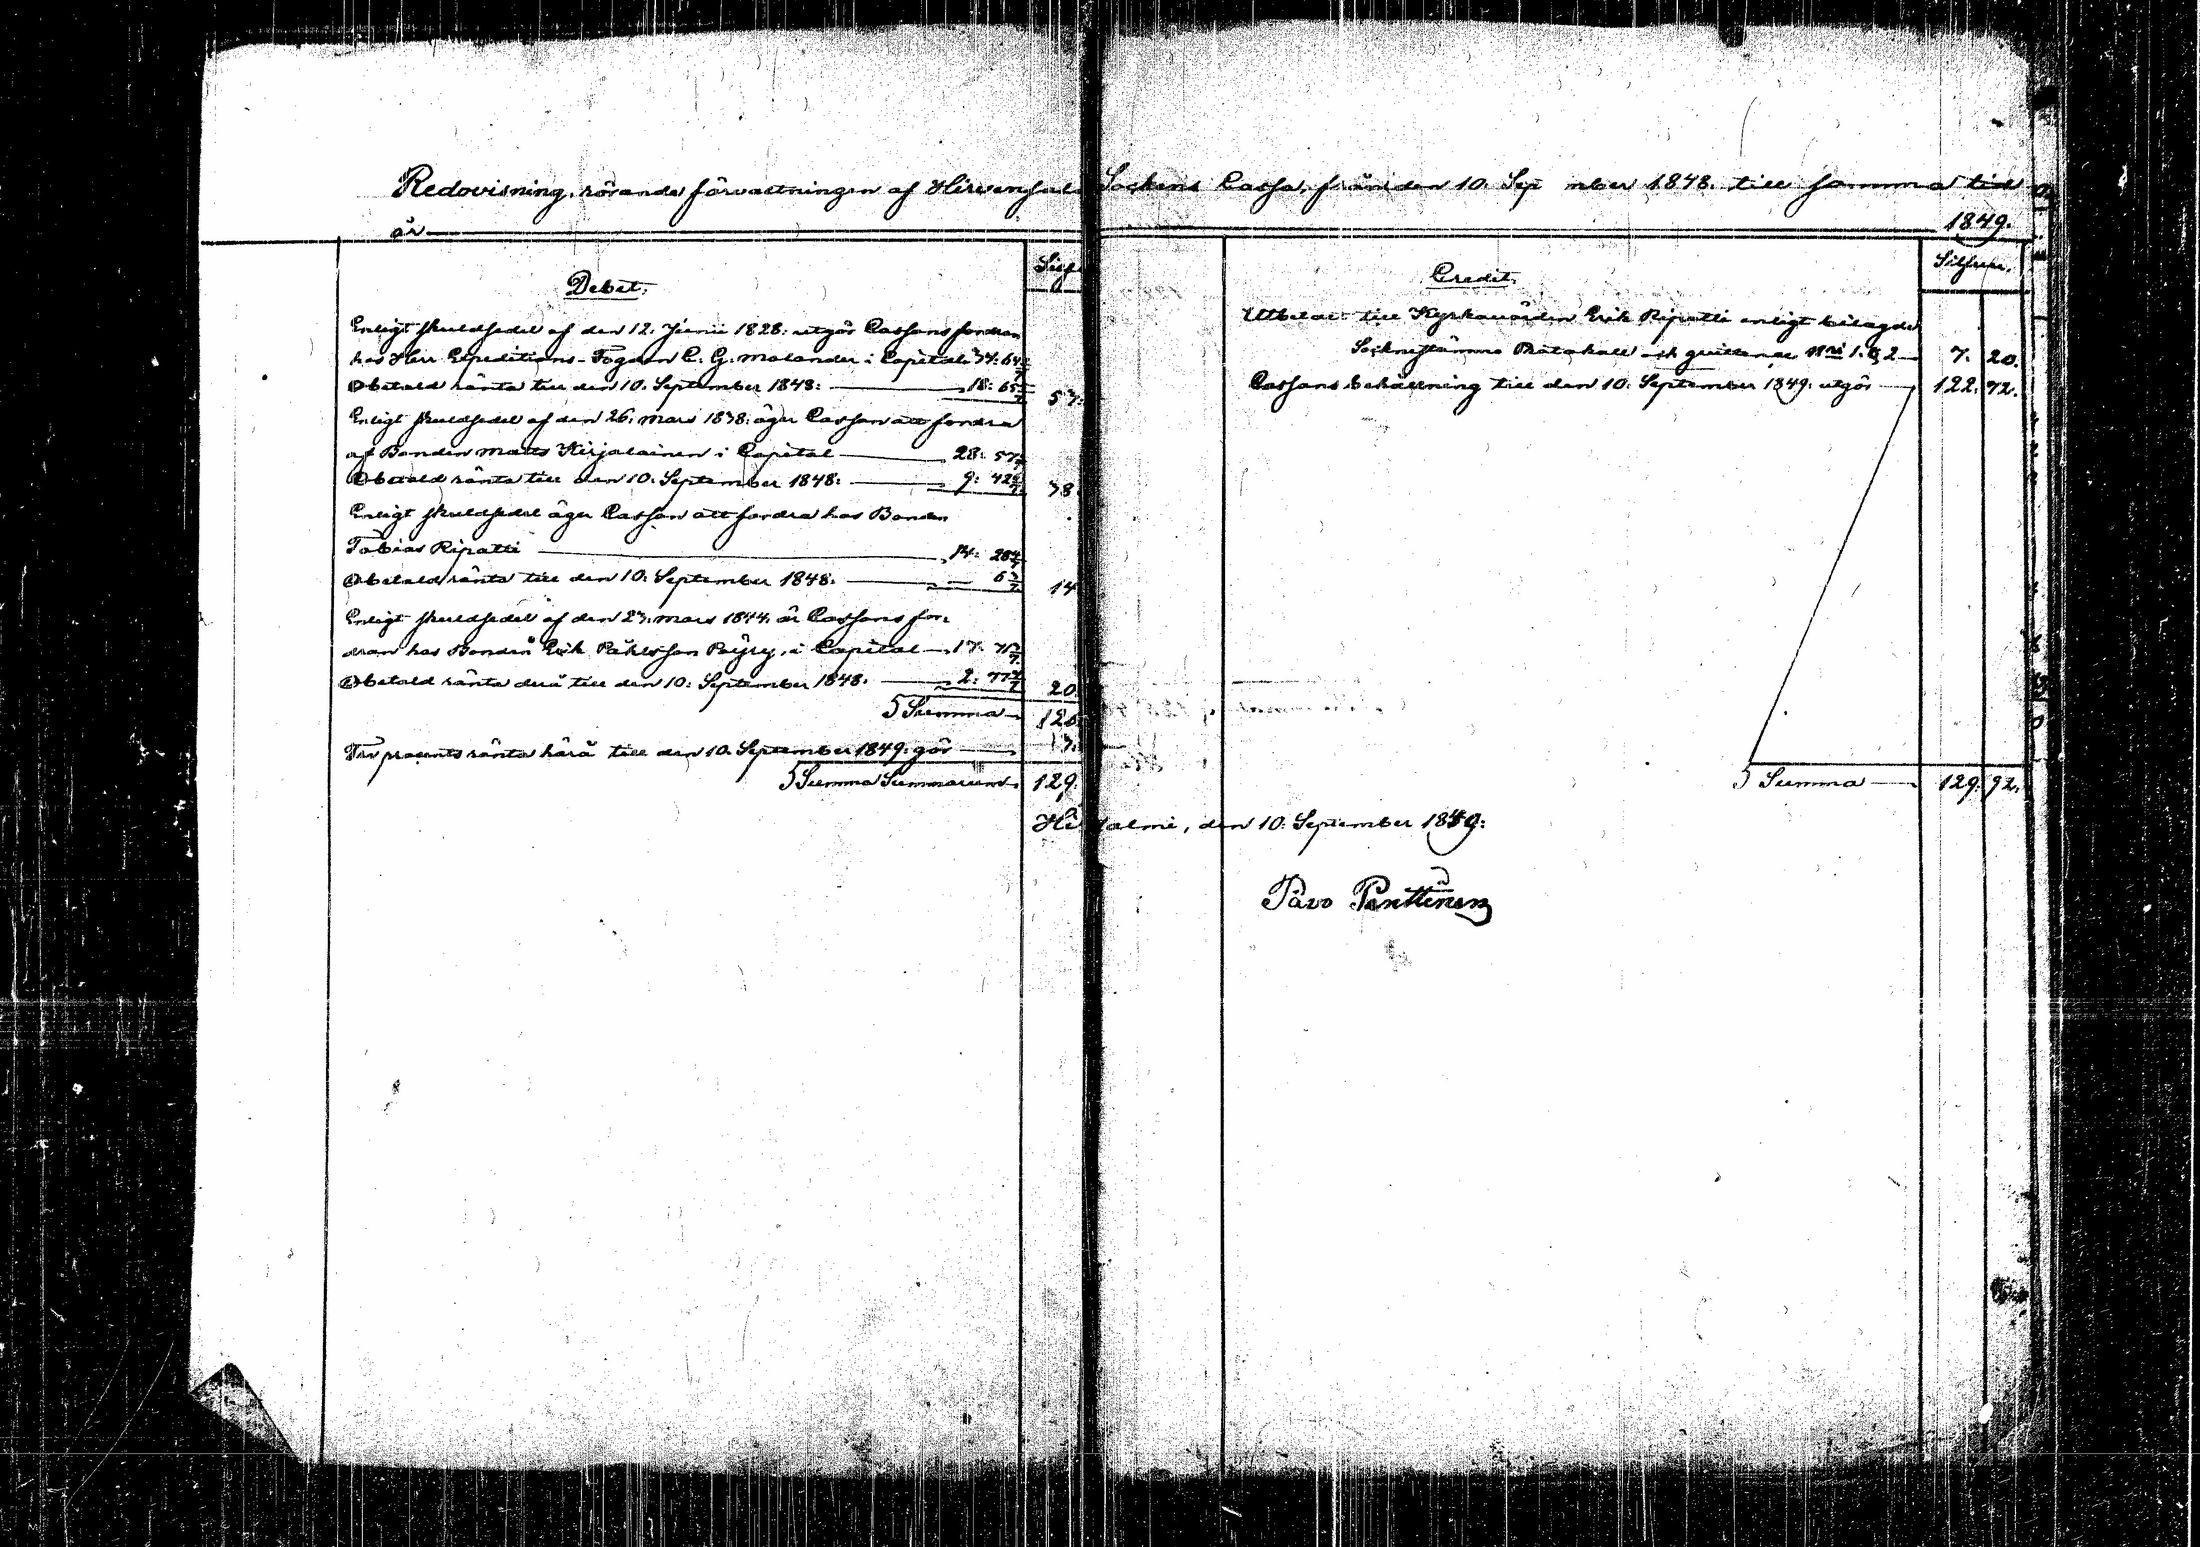 Redovisning, rörande förvaltningen af Hirvensal Sockens Cassa, från den 10. Sep mber 1848. till samma tid
år 1849.
Debet. Silf
Enligt skuldsedel af den 12. Junii 1828. utgör Cassans fordran
hos Herr Expeditions-Fogden C. G. Molander i Capital
Obetald ränta till den 10. September 1848. 18: 65 57.
Enligt skuldsedel af den 26. Mars 1838. äger Cassan att fordra
af Bonden Matts Kirjalainen i Capital 28: 57
Obetald ränta till den 10. September 1848. 9: 42 38.
Enligt skuldsedel äger Cassan att fordra hos Bonden
Tobias Ripatti 14: 28 4/7
Obetald ränta till den 10. September 1848. 14
Enligt skuldsedel af den 27. Mars 1844. är Cassans for-
dran hos Bonden Erik Påhlsson Pöyry, i Capital 17: 71 3/7
Obetald ränta derå till den 10. September 1848. 2: 77 20.
Summa 126.
Tre procents ränta härå till den 10. September 1849. gör 3.
Summa Summarum 129.
Credit. Silfver.
Utbetalt till Kyrkovärden Erik Ripatti enligt bilagde
Socknestämmo Protokoll och quittence N:ri 1. & 2 7. 20.
Cassans behållning till den 10. September 1849. utgör 122. 72.
Summa 129. 92.
Hi salmi, den 10. September 1849.
Påvo Penttinen